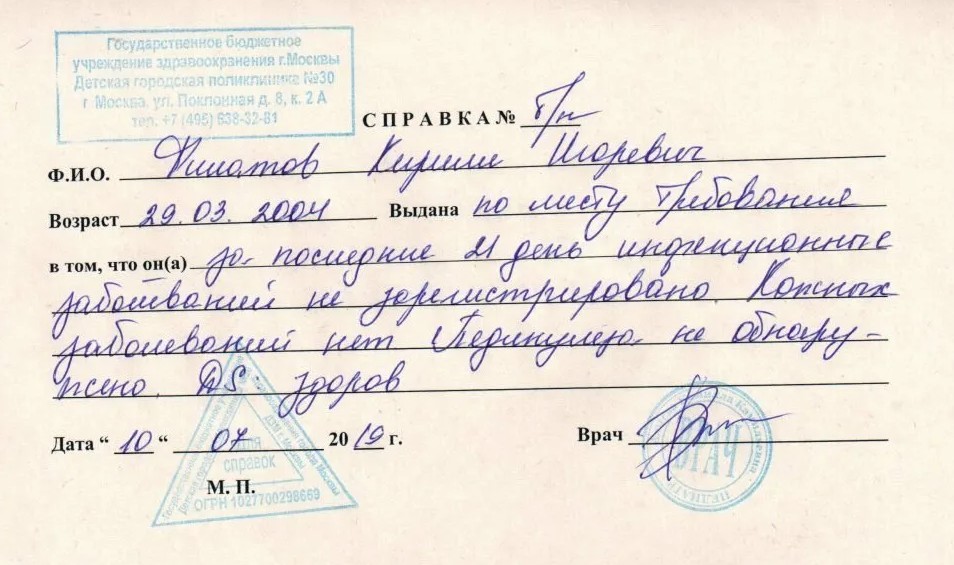 Государственное бюджетное
учреждение здравоохранения г.Москвы
Детская городская поликлиника №30
г. Москва, ул. Поклонная д. 8, к. 2 А
тел. +7 (495) 638-32-81
СПРАВКА № б/н
Ф.И.О. Филатов Кирилл Игоревич
Возраст 29.03.2004 Выдана по месту требования
в том, что он(а) за последние 21 день инфекционные
заболеваний не зарегистрировано. Кожных
заболеваний нет Педикулеза не обнару-
жено. DS: здоров
Дата “ 10 “ 07 2019 г. Врач
для
справок
М. П.
ОГРН 1027700298669
ВРАЧ
ПЕДИАТР